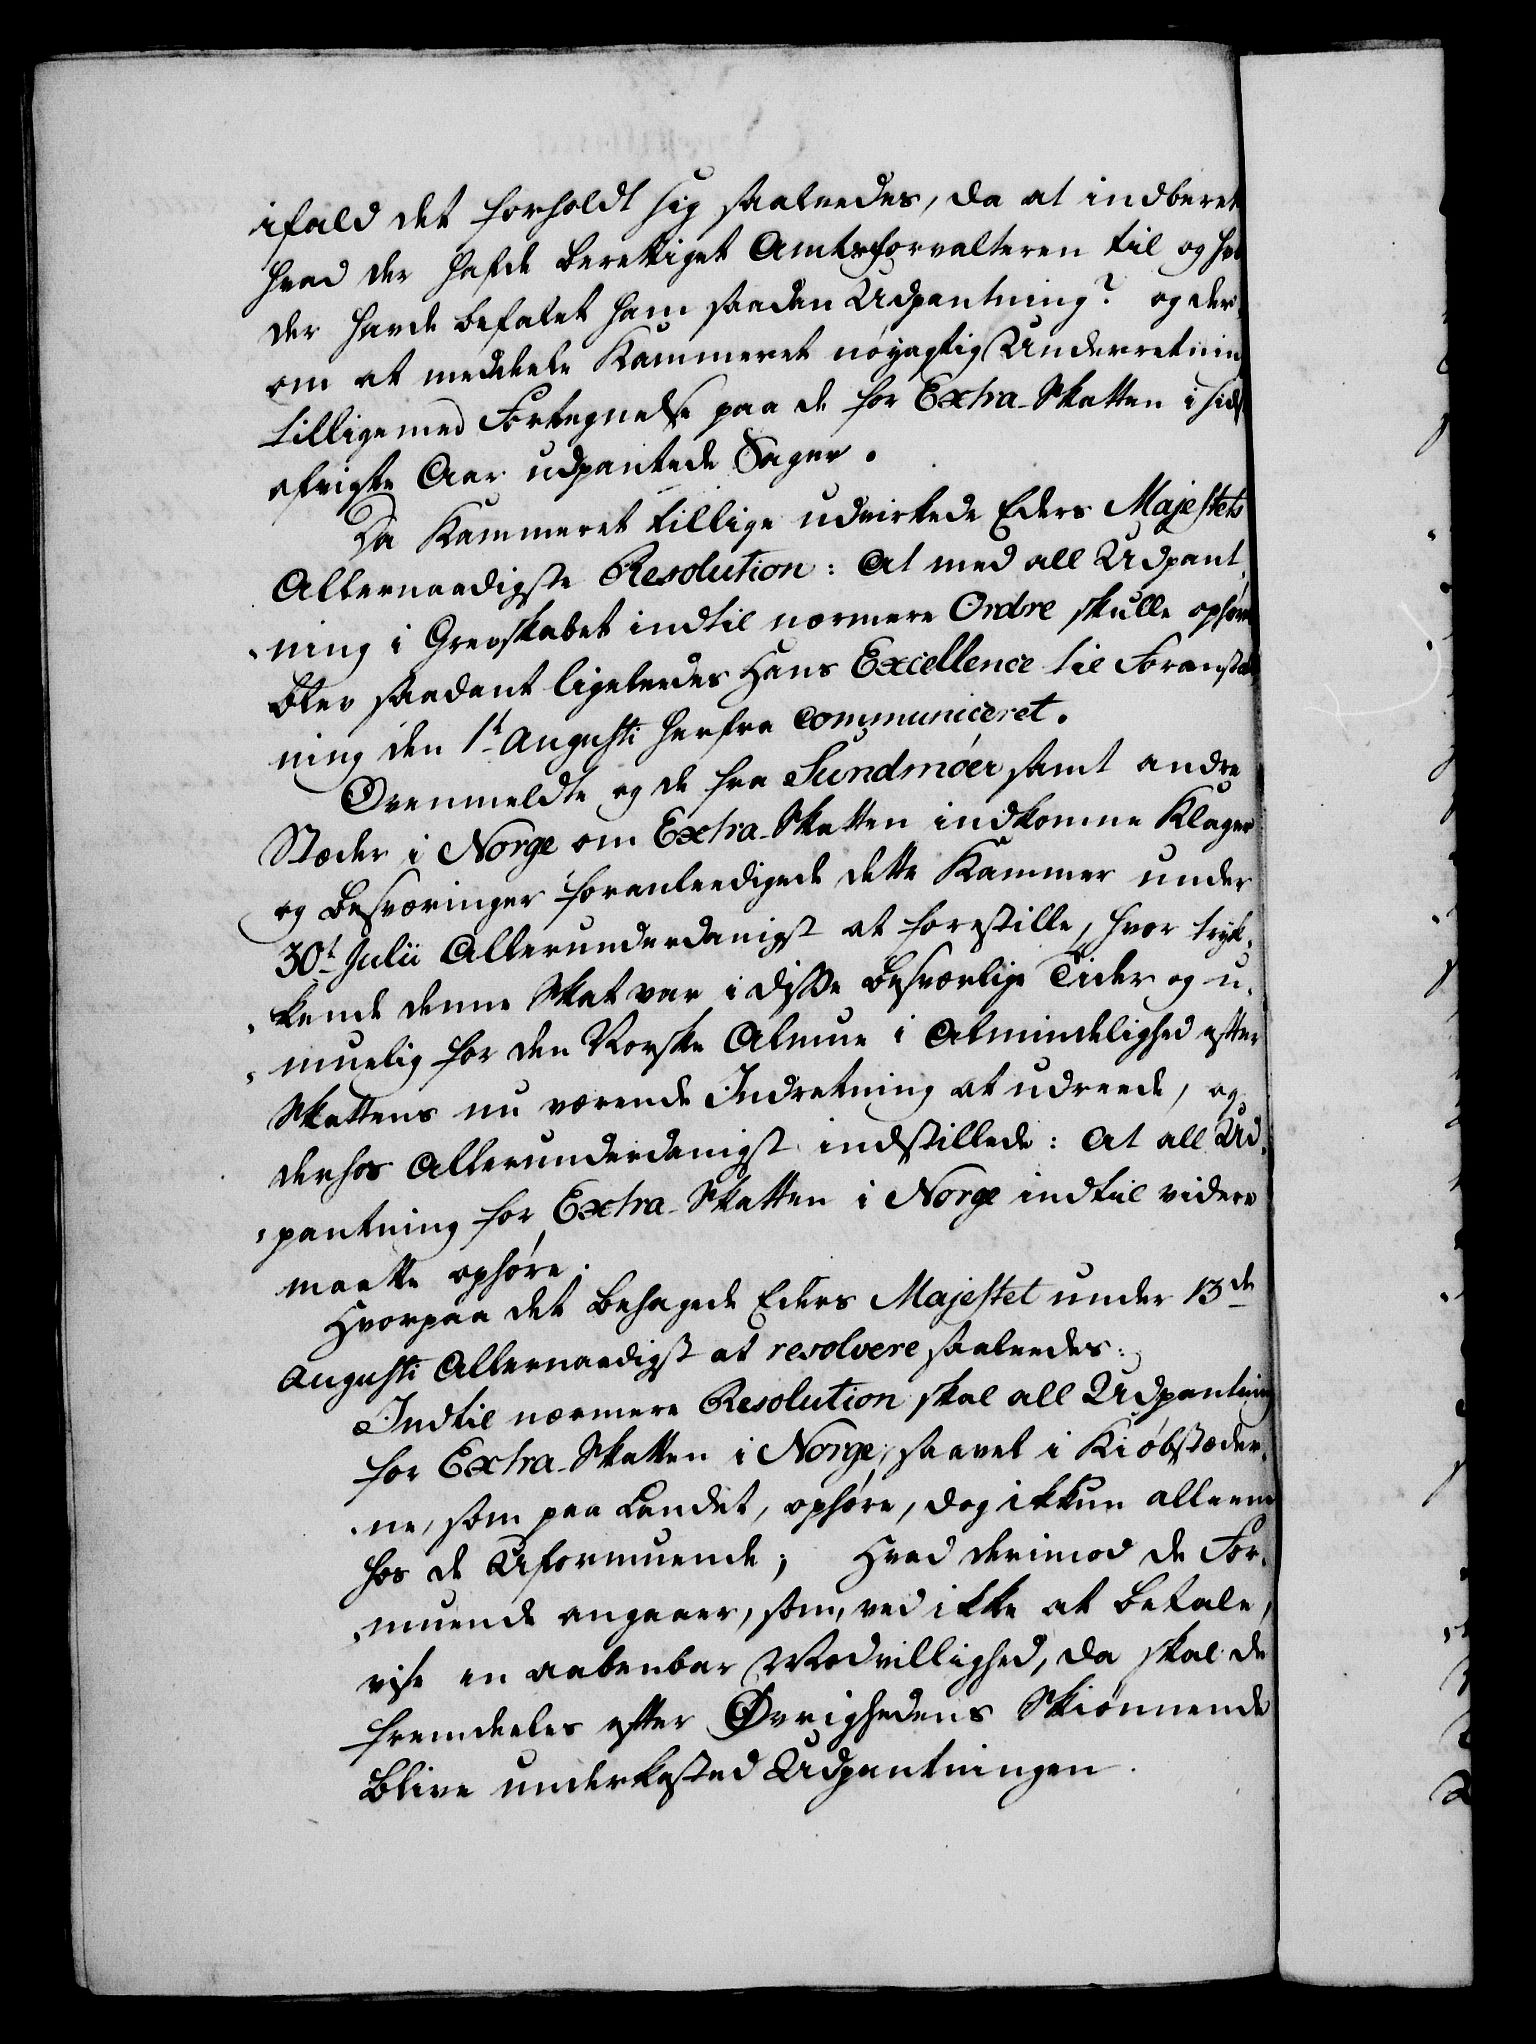 ifald det forholdt sig saaledes, da at indberet
hvad der hafde berettiget Amtsforvalteren til og hvo
der havde befalet ham saadan Udpantning? og der,
om at meddeele Kammeret nøyagtig Underretnin
tilligemed Fortegnelse paa de for Extra-Skatten i sidst
afvigte Aar udpantede Sager.
Da Kammeret tillige udvirkede Eders Majestets
Allernaadigste Resolution: At med all Udpant,
ning i Grevskabet indtil nærmere Ordre skulle ophøre
blev saadant ligeleedes Hans Excellence til Foranstalt
ning den 1t Augusti herfra communiceret.
Ovenmeldte og de fra Sundmöer samt andre
Stæder i Norge om Extra-Skatten indkomne Klager
og Besværinger foranleedigede dette Kammer under
30t Julii Allerunderdanigst at forestille, hvor tryk,
kende denne Skat var i disse besværlige Tider og u,
muelig for den Norske Almue i Almindelighed efter
Skattens nu værende Indretning at udreede, og
derhos Allerunderdanigst indstillede: At all Ud,
pantning for Extra-Skatten i Norge indtil videre
maatte ophøre.
Hvorpaa det behagede Eders Majestet under 13de
Augusti Allernaadigst at resolvere saaleedes:
Indtil nærmere Resolution skal all Udpantning
for Extra-Skatten i Norge, saavel i Kiøbstæder,
ne, som paa Landet, ophøre, dog ikkun alleene
hos de Uformuende; Hvad derimod de For,
muende angaaer, som, ved ikke at betale,
vise en aabenbar Modvillighed, da skal de
fremdeeles efter Øvrighedens Skiønnende
blive underkasted Udpantningen.